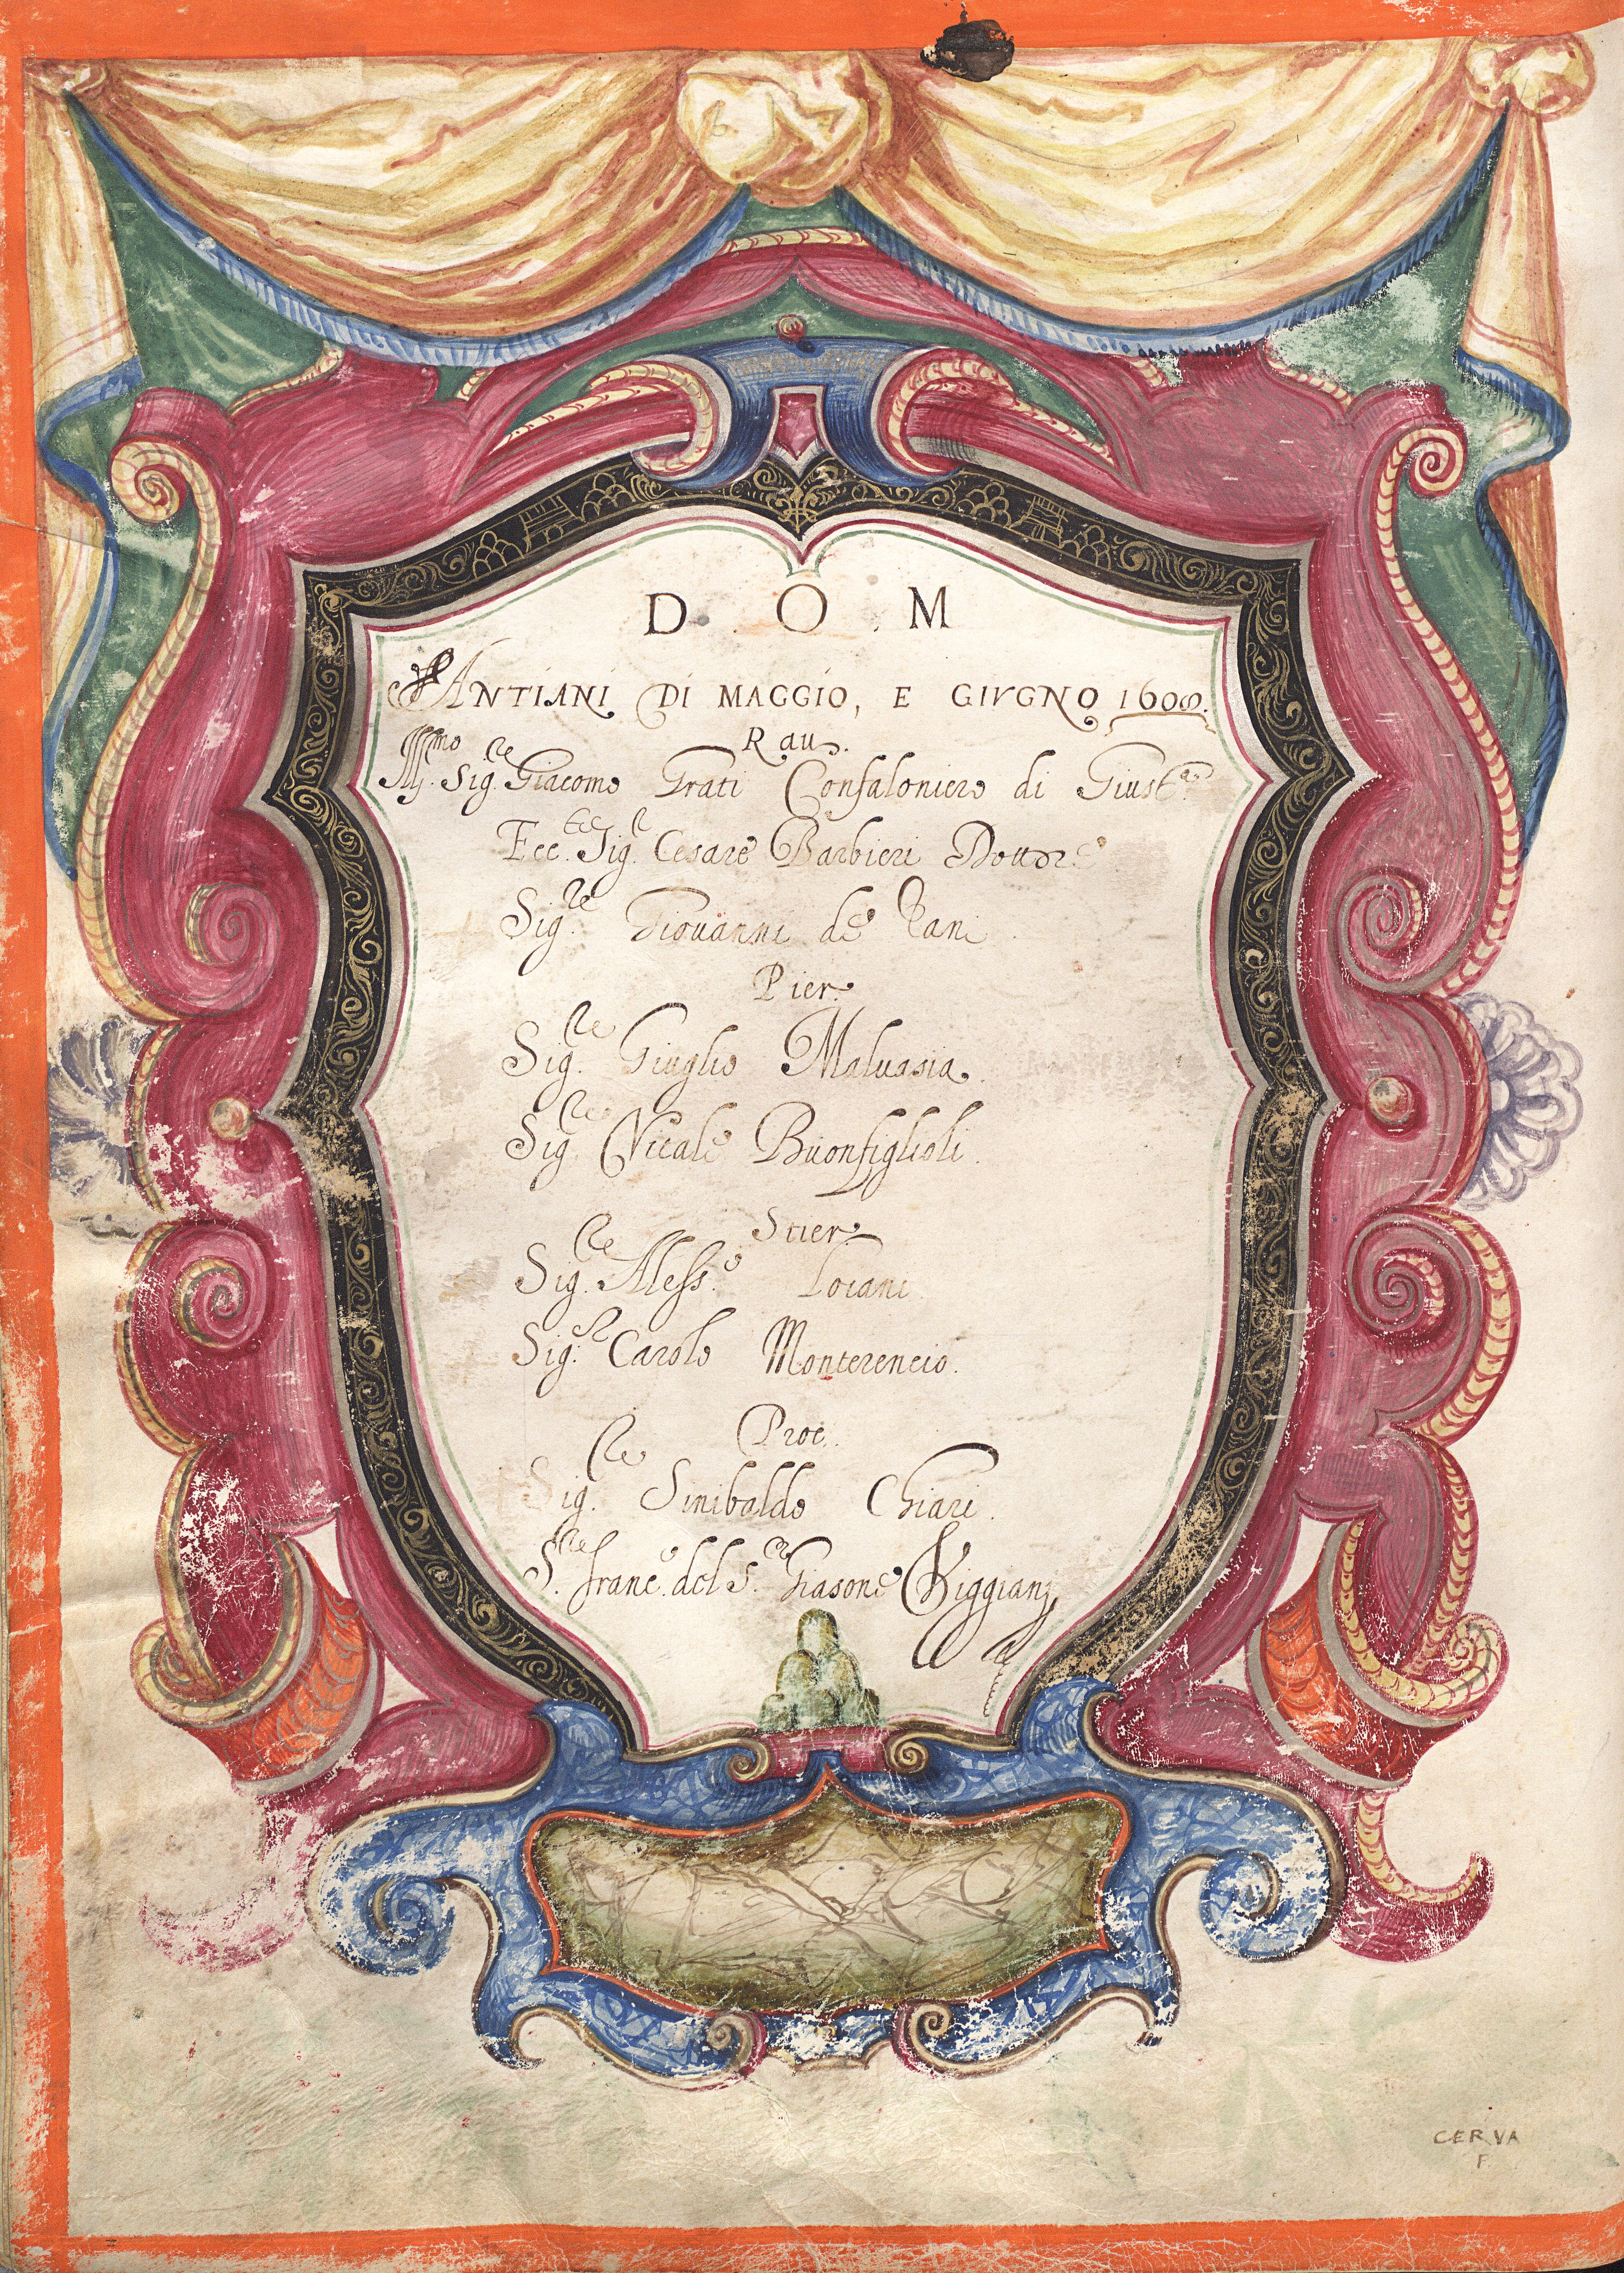 D. O. M
ANTIANI DI MAGGIO, E GIVGNO 1608.
Rau.
Ill.mo Sig.re Giacomo Grati Confaloniero di Giust.a
Ecc.Ecc Sig.r Cesare Barbieri Dottore
Sig.re Giouanni de
Pier.
Sig.re Giuglio Maluasia.
Sig.re Vitale Buonfiglioli.
Stier.
Sig.re Aless.o Loiani.
Sig.r Carolo Monterencio.
Proc.
Sig.re Sinibaldo Chiari.
S.re Franc.o del S.re Giasone Viggiani
CERVA
F